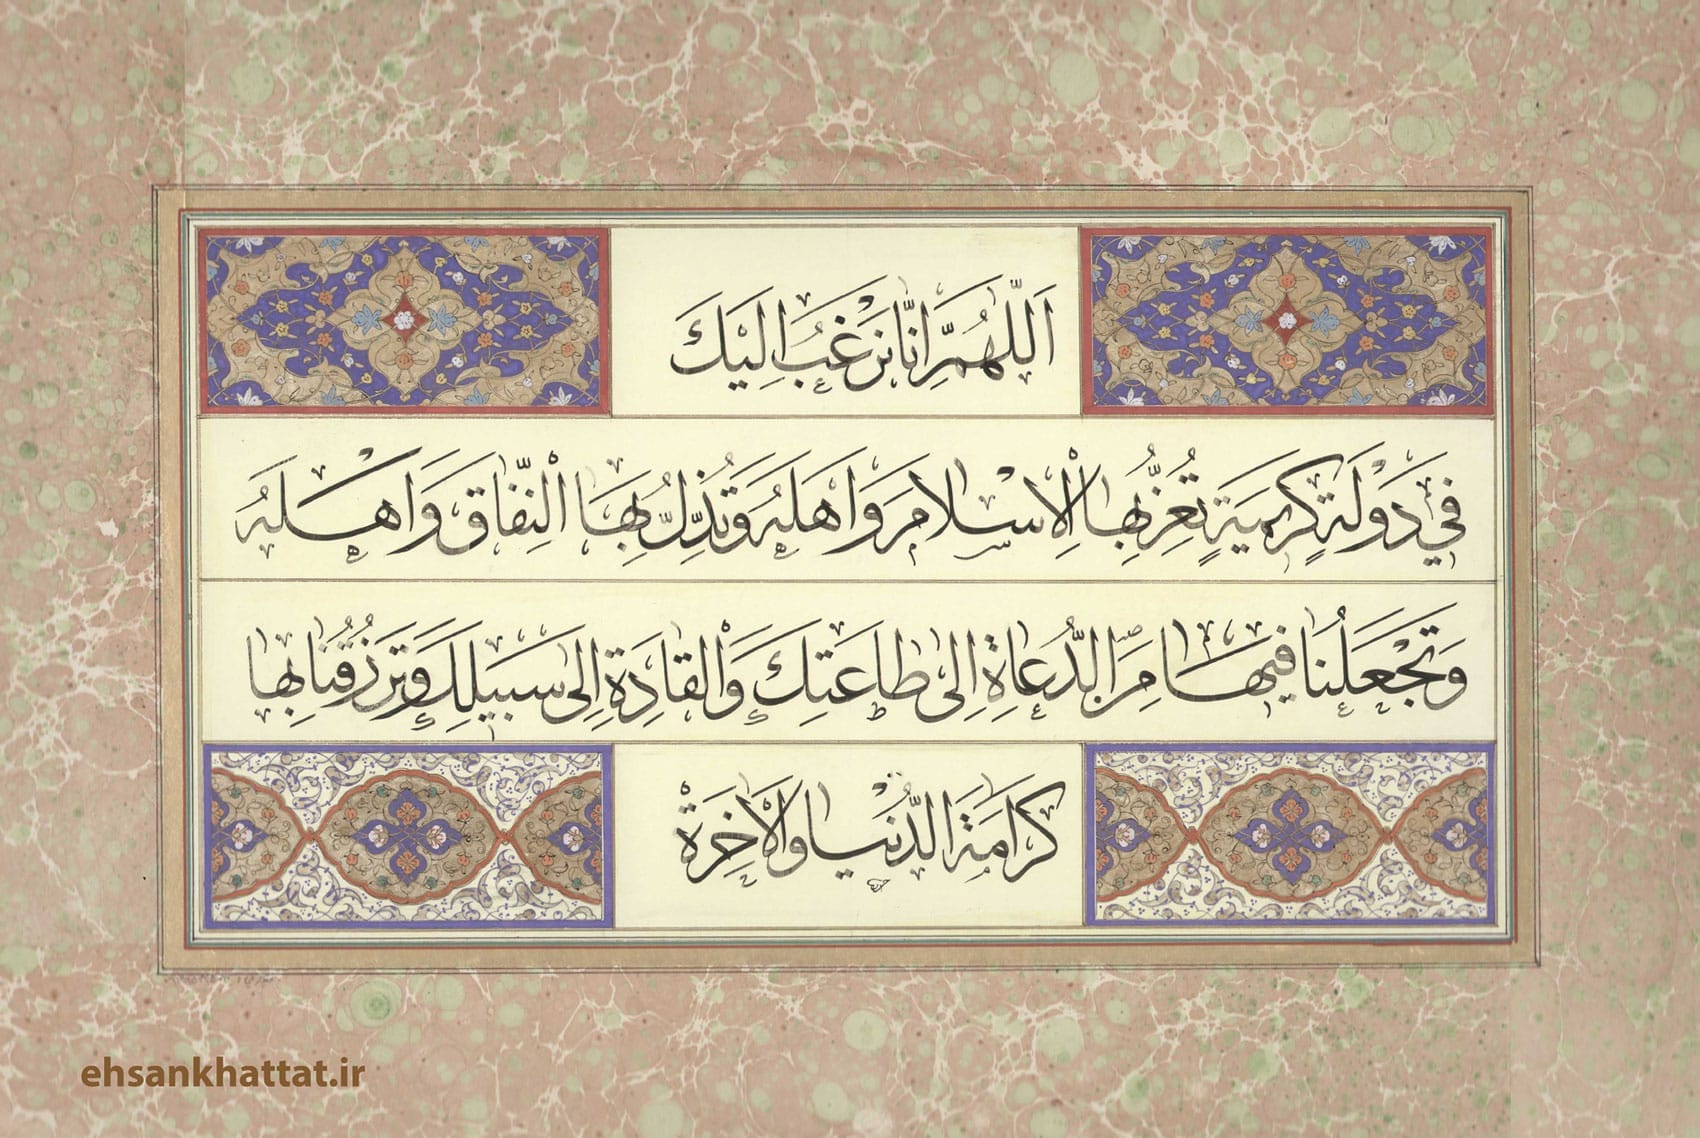 اَللّٰهُمَّ اِنَّا نَرْغَبُ اِلَيْكَ
في دَوْلَةٍ كَريمَةٍ تُعِزُّ بِهَا الْاِسْلامَ وَ اَهْلَهُ وَ تُذِلُّ بِهَا النِّفَاقَ وَ اَهْلَهُ
وَ تَجْعَلُنَا فيهَا مِنَ الدُّعَاةِ اِلى طَاعَتِكَ وَ الْقَادَةِ اِلى سَبيلِكَ وَ تَرْزُقُنَا بِهَا
كَرَامَةَ الدُّنْيَا وَ الْاٰخِرَةِ
ehsankhattat.ir